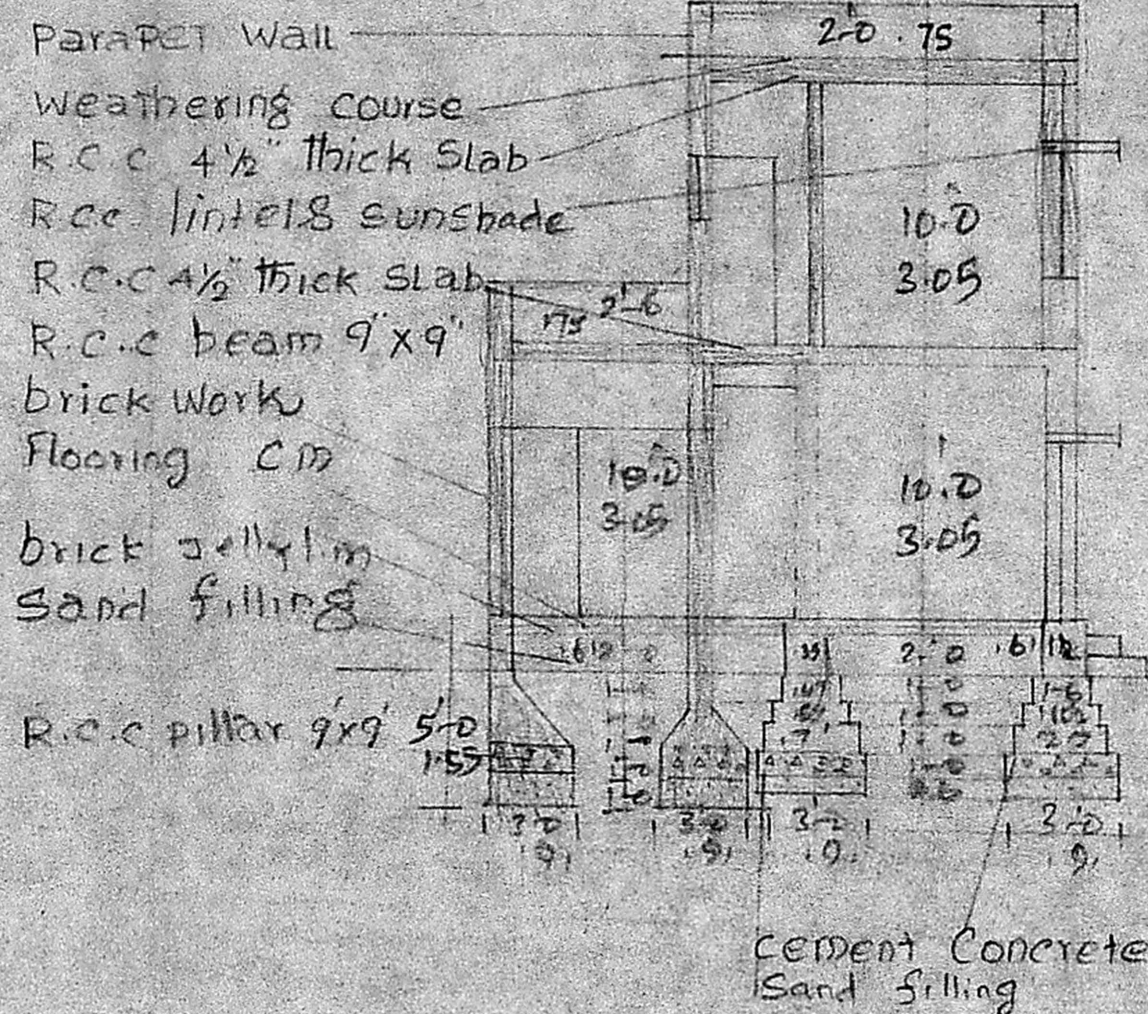 Parapet Wall
Weathering Course
R.C.C 4½" thick Slab
Rcc lintel & sunshade
R.C.C 4½" thick Slab
R.C.C beam 9"x9"
brick work
Flooring Cm
brick
Sand filling
R.C.C pillar 9"x9"
2-0 .75
10.0
3.05
2'-6
.75
10.0
3.05
10.0
3.05
2-0
5-0
1.55
3-0
.9
3-0
.9
3-0
.9
3-0
.9
Cement Concrete
Sand filling